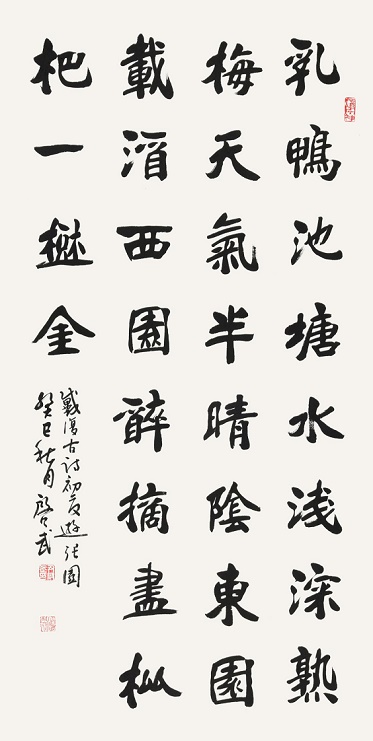 乳鴨池塘水浅深熟
梅天氣半晴陰東園
載酒西園醉摘盡枇
杷一樹金
戴復古诗初夏遊张園
癸巳秋月武